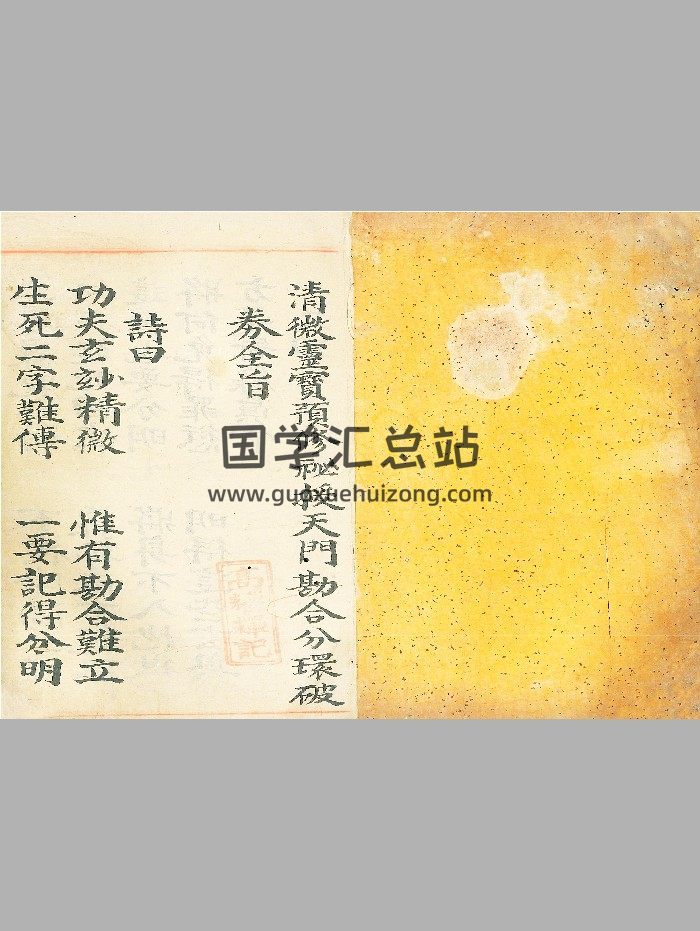 清微靈寶預修秘授天門勘合分環破
券全旨
詩曰
功夫玄妙精微 惟有勘合難立
生死二字難傳 一要記得分明
国学汇总站
www.guoxuehuizong.com